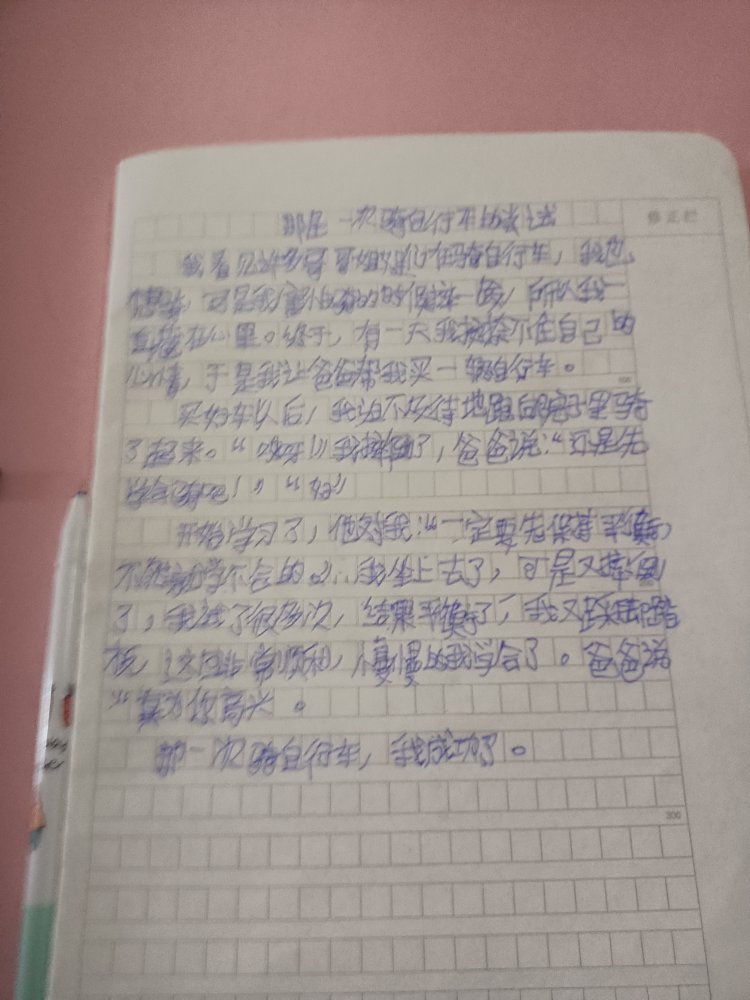 那是一次骑自行车的尝试
修正栏
我看见许多哥哥姐姐们在骑自行车，我也
想学，可是我害怕 的时候摔一跤，所以我一
直藏在心里。终于，有一天我 不住自己的
心情，于是我让爸爸帮我买一辆自行车。
100
买好车以后，我迫不及待地跑向院子里骑
了起来。“哎呀！”我摔倒了，爸爸说：“还是先
学会 吧！”“好”
开始学习了，他对我：“一定要先保持平衡，
不然 学不会的。”我坐上去了，可是又摔倒
了，我试了很多次，结果平衡了，我又踩 踏
板，这回非常顺利，慢慢的我学会了。爸爸说
“真为你高兴。
那一次骑自行车，我成功了。
300